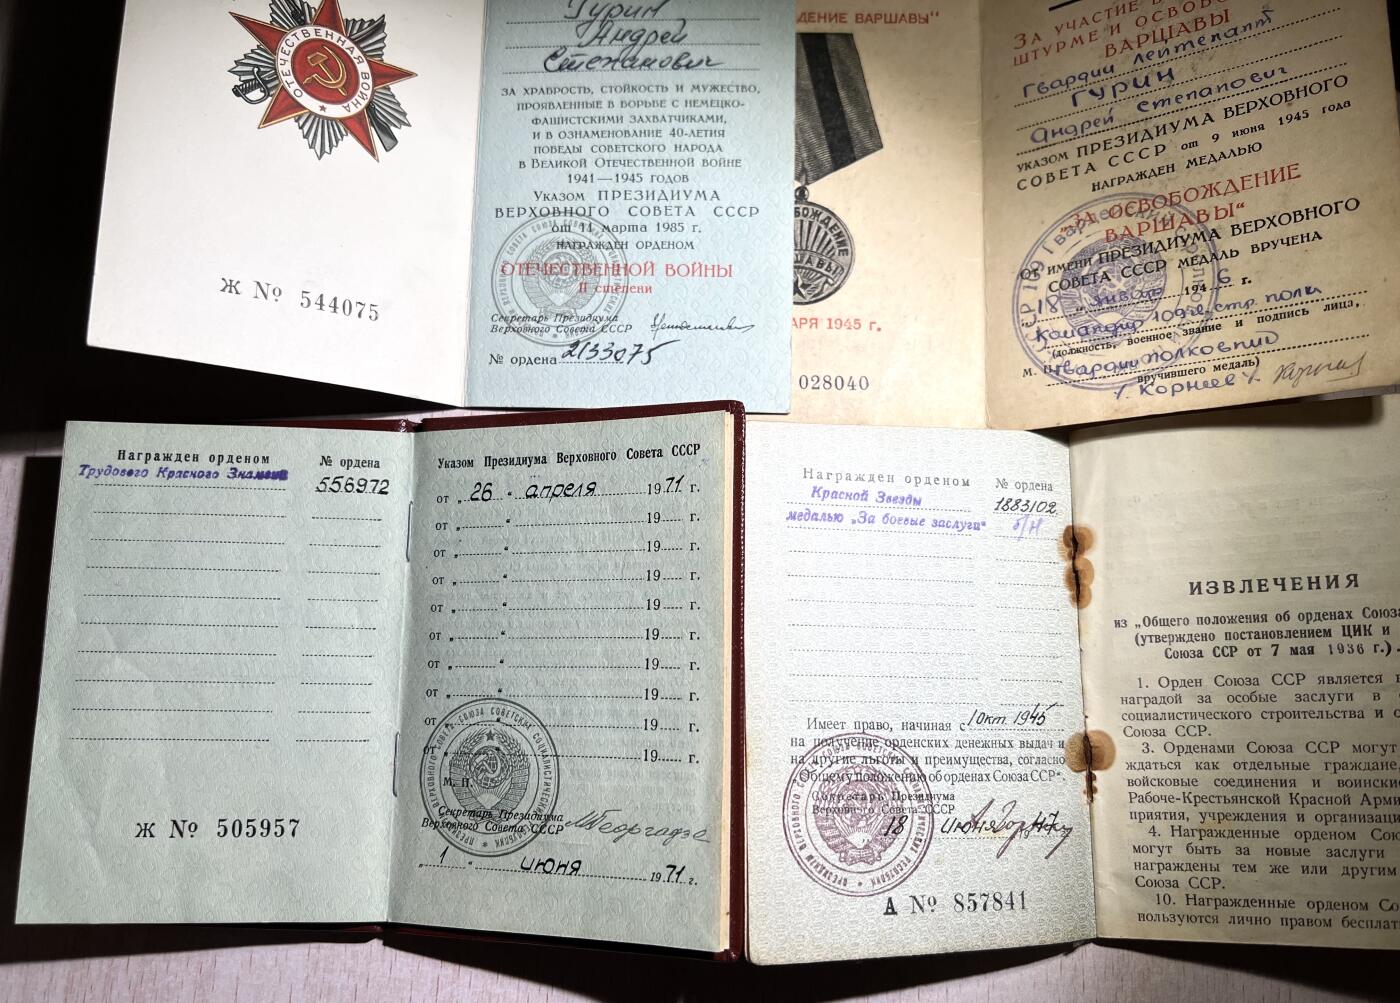 ОТЕЧЕСТВЕННАЯ ВОЙНА
Ж № 544075
Гурин
Андрей
Степанович
ЗА ХРАБРОСТЬ, СТОЙКОСТЬ И МУЖЕСТВО,
ПРОЯВЛЕННЫЕ В БОРЬБЕ С НЕМЕЦКО-
ФАШИСТСКИМИ ЗАХВАТЧИКАМИ,
И В ОЗНАМЕНОВАНИЕ 40-ЛЕТИЯ
ПОБЕДЫ СОВЕТСКОГО НАРОДА
В ВЕЛИКОЙ ОТЕЧЕСТВЕННОЙ ВОЙНЕ
1941—1945 ГОДОВ
УКАЗОМ ПРЕЗИДИУМА
ВЕРХОВНОГО СОВЕТА СССР
от 11 марта 1985 г.
НАГРАЖДЕН ОРДЕНОМ
ОТЕЧЕСТВЕННОЙ ВОЙНЫ
II степени
Секретарь Президиума
Верховного Совета СССР
№ ордена 2133075
ДЕНИЕ ВАРШАВЫ"
БОЖДЕНИЕ
ШАВЫ
АРЯ 1945 г.
028040
ЗА УЧАСТИЕ В
ШТУРМЕ И ОСВОБО
ВАРШАВЫ
Гвардии лейтенант
ГУРИН
Андрей Степанович
УКАЗОМ ПРЕЗИДИУМА ВЕРХОВНОГО
СОВЕТА СССР от 9 июня 1945 года
НАГРАЖДЕН МЕДАЛЬЮ
„ЗА ОСВОБОЖДЕНИЕ
ВАРШАВЫ“
ОТ ИМЕНИ ПРЕЗИДИУМА ВЕРХОВНОГО
СОВЕТА СССР МЕДАЛЬ ВРУЧЕНА
18 января 1946 г.
Командир
(должность, воинское звание и подпись лица,
М. П. Гвардии полковник
вручившего медаль)
/ Корнеев /
Награжден орденом № ордена
Трудового Красного Знамени 556972
Ж № 505957
Указом Президиума Верховного Совета СССР
от „ 26 “ апреля 1971 г.
от „ “ 19 г.
от „ “ 19 г.
от „ “ 19 г.
от „ “ 19 г.
от „ “ 19 г.
от „ “ 19 г.
от „ “ 19 г.
от „ “ 19 г.
от „ “ 19 г.
М. П.
Секретарь Президиума
Верховного Совета СССР МГеоргадзе
„ 1 “ июня 1971 г.
Награжден орденом № ордена
Красной Звезды 1883102
медалью „За боевые заслуги“ б/н
Имеет право, начиная с 1 окт. 1945
на получение орденских денежных выдач и
на другие льготы и преимущества, согласно
"Общему положению об орденах Союза ССР"
Секретарь Президиума
Верховного Совета СССР
18 июня 47
А № 857841
ИЗВЛЕЧЕНИЯ
из „Общего положения об орденах Союза
(утверждено постановлением ЦИК и
Союза ССР от 7 мая 1936 г.).
1. Орден Союза ССР является
наградой за особые заслуги в
социалистического строительства и о
Союза ССР.
3. Орденами Союза ССР могут
ждаться как отдельные граждане,
войсковые соединения и воински
Рабоче-Крестьянской Красной Арми
приятия, учреждения и организаци
4. Награжденные орденом Сою
могут быть за новые заслуги
награждены тем же или другим
Союза ССР.
10. Награжденные орденом Со
вользуются лично правом бесплат